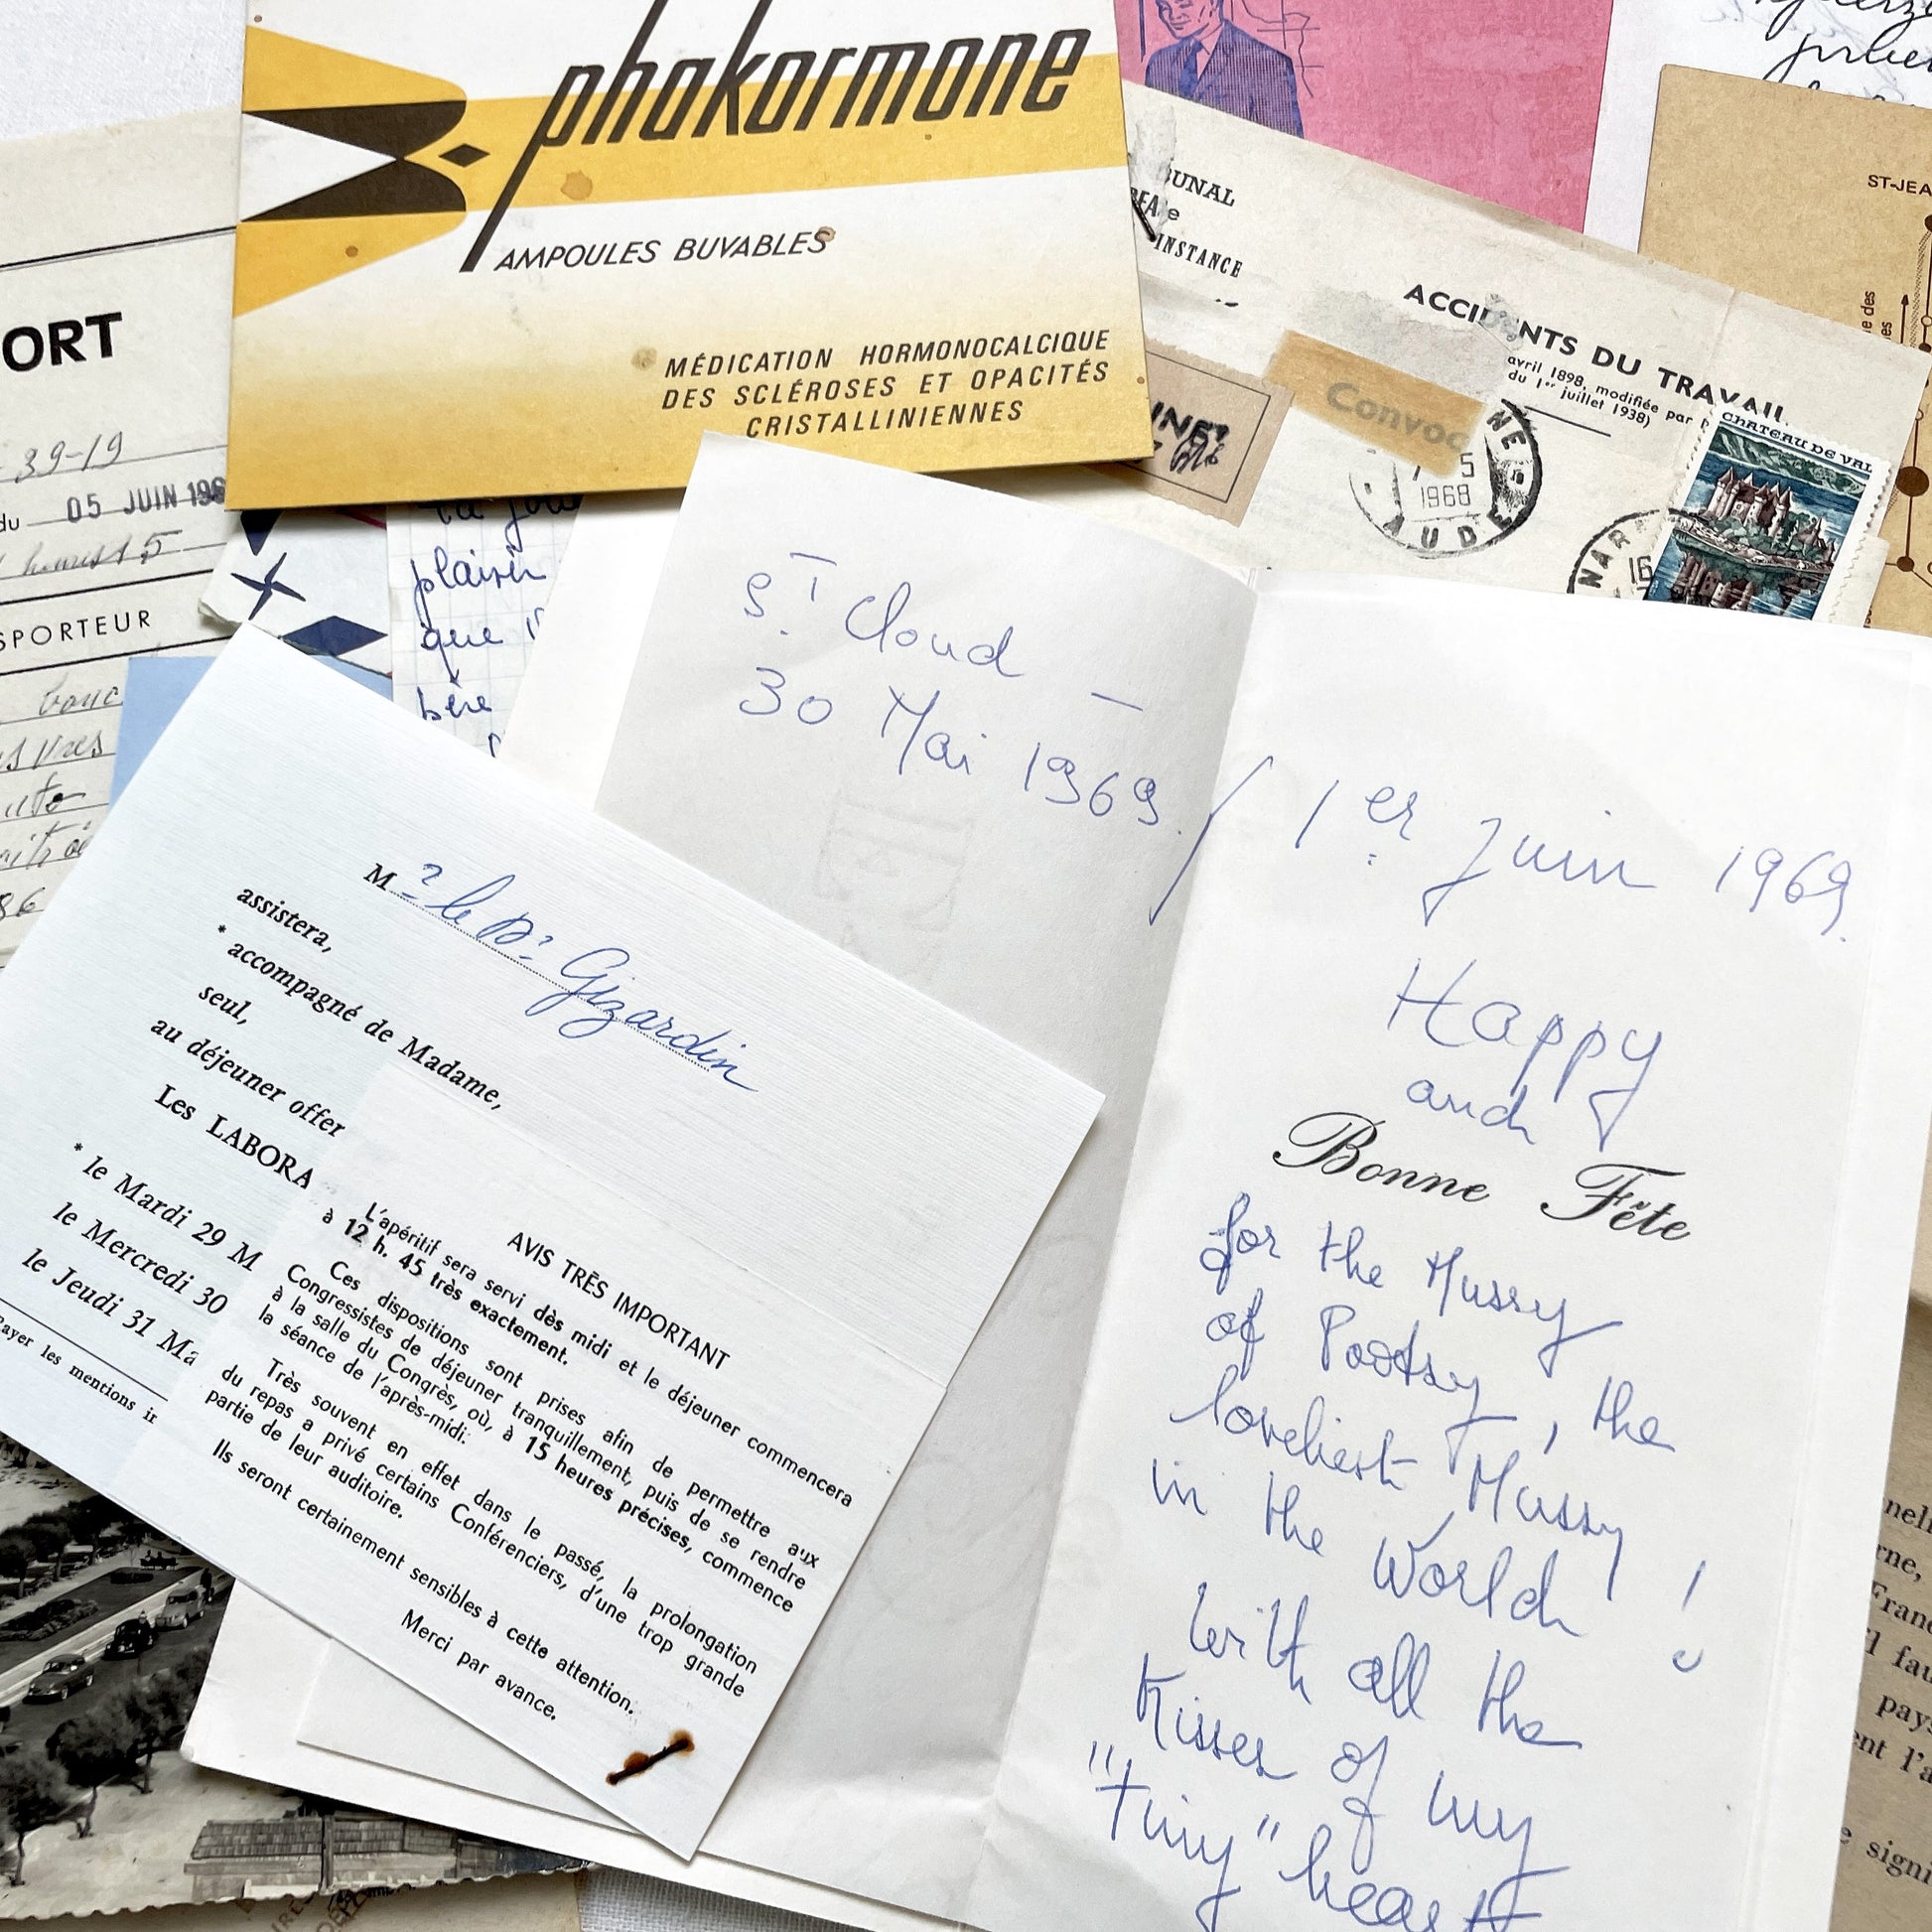 phakormone
AMPOULES BUVABLES
MÉDICATION HORMONOCALCIQUE
DES SCLÉROSES ET OPACITÉS
CRISTALLINIENNES
BUNAL
INSTANCE
ACCIDENTS DU TRAVAIL
avril 1898, modifiée par
du 1er juillet 1938)
Convoc
5
1968
AUDE
NAR
16
CHATEAU DE VAL
ST-JEA
ORT
39-19
du 05 JUIN 196
SPORTEUR
plaisir
que
St Cloud —
30 Mai 1969. / 1er Juin 1969.
Happy
and
Bonne Fête
for the Mussy
of Pootsy, the
loveliest Mussy
in the World !
With all the
Kisses of my
"tiny" heart
Mr le Dr Gizardin
assistera,
* accompagné de Madame,
seul,
au déjeuner offer
Les LABORA
* le Mardi 29 M
le Mercredi 30
le Jeudi 31 Ma
ayer les mentions
AVIS TRÈS IMPORTANT
L'apéritif sera servi dès midi et le déjeuner commencera
à 12 h. 45 très exactement.
Ces dispositions sont prises afin de permettre aux
Congressistes de déjeuner tranquillement, puis de se rendre
à la salle du Congrès, où, à 15 heures précises, commence
la séance de l'après-midi.
Très souvent en effet dans le passé, la prolongation
du repas a privé certains Conférenciers, d'une trop grande
partie de leur auditoire.
Ils seront certainement sensibles à cette attention.
Merci par avance.